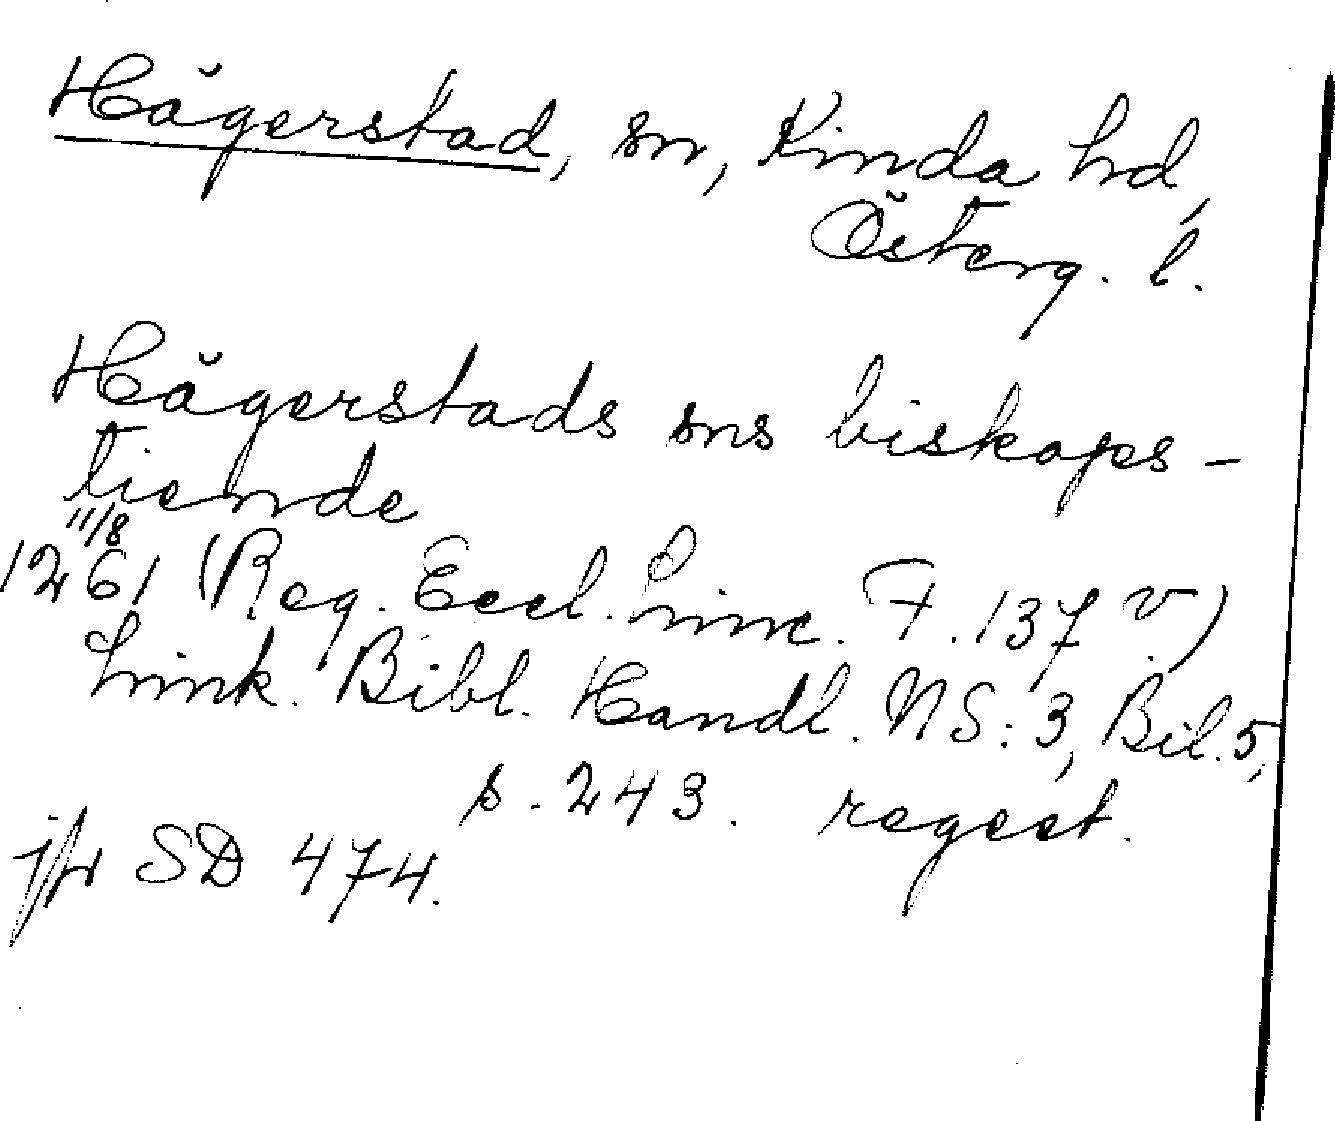 Hägerstad, sn, Kinda hd,
Österg. l.
Hägerstads sns biskops-
tiende
11/8
1261 (Reg. Eccl. Linc. F. 137 v.)
Link. Bibl. Handl. NS: 3, Bil. 5,
s. 243. regest.
jfr SD 474.